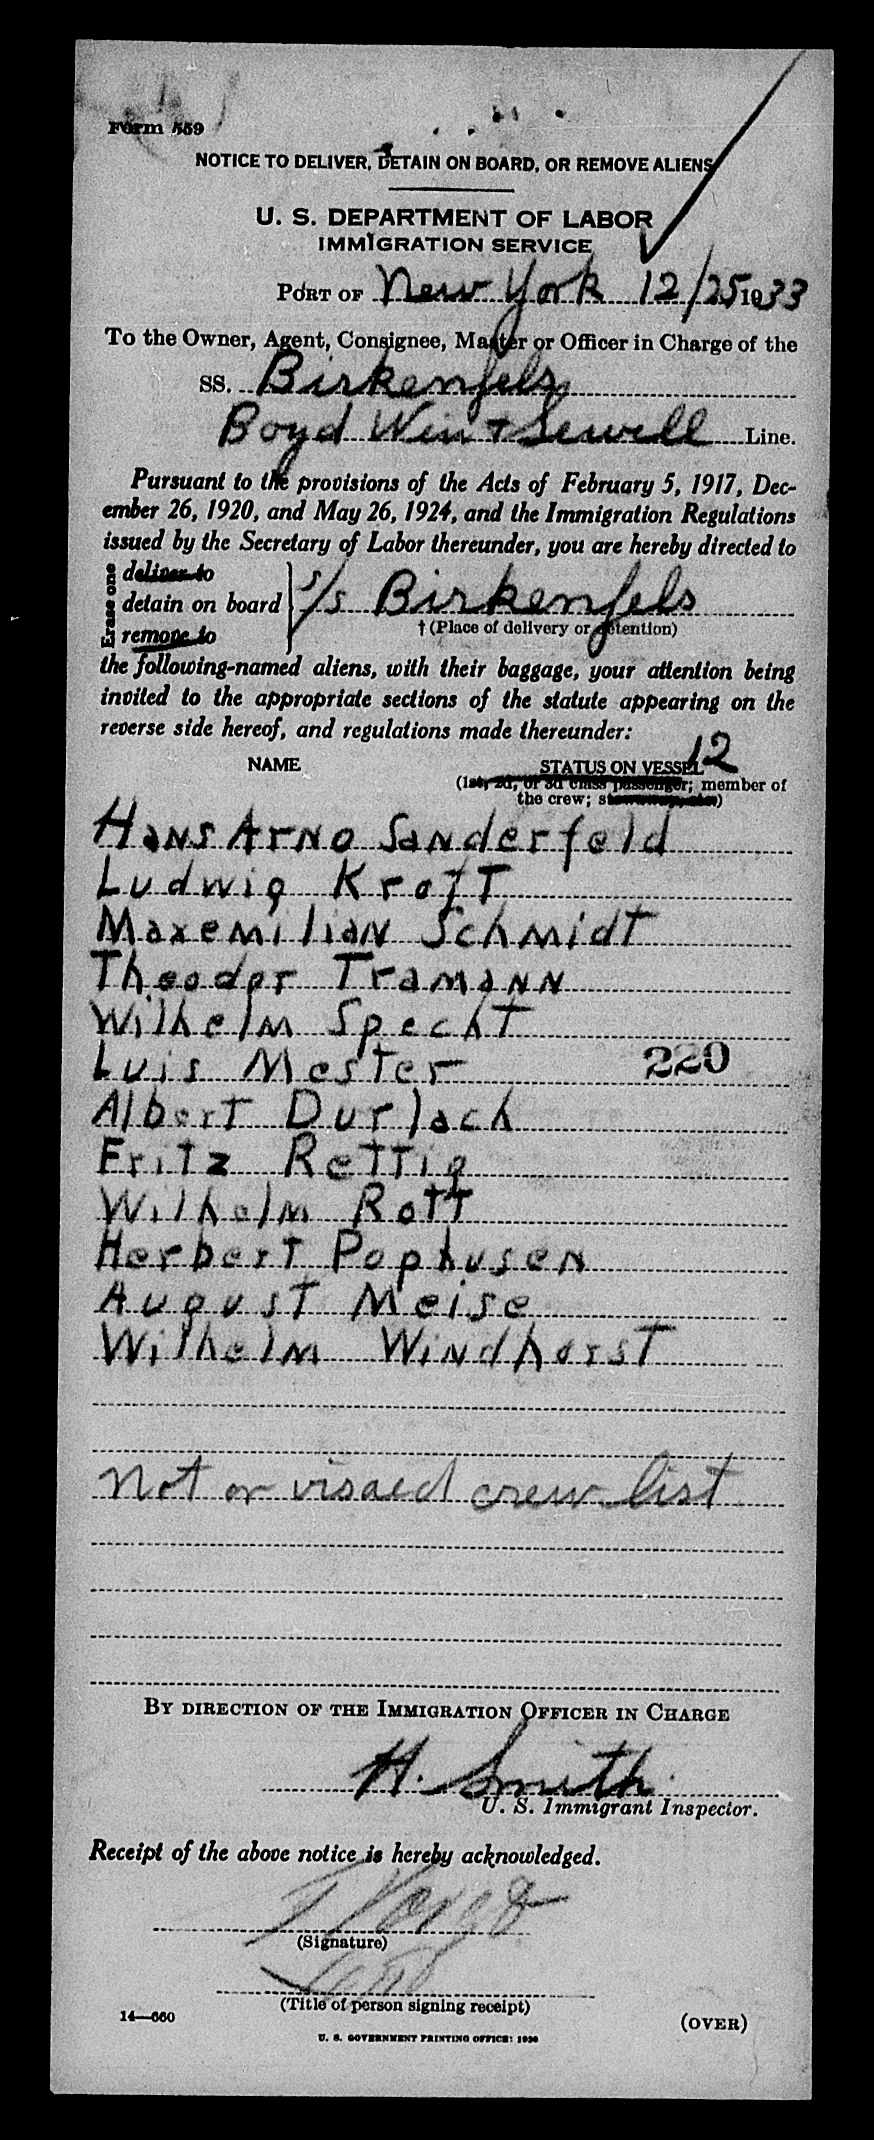 Form 559
NOTICE TO DELIVER, DETAIN ON BOARD, OR REMOVE ALIENS
U. S. DEPARTMENT OF LABOR
IMMIGRATION SERVICE
PORT OF New York 12/25 1933
To the Owner, Agent, Consignee, Master or Officer in Charge of the
SS. Birkenfels
Boyd Win + Sewell Line.
Pursuant to the provisions of the Acts of February 5, 1917, Dec-
ember 26, 1920, and May 26, 1924, and the Immigration Regulations
issued by the Secretary of Labor thereunder, you are hereby directed to
Erase one
deliver to
detain on board s/s Birkenfels
remove to
† (Place of delivery or detention)
the following-named aliens, with their baggage, your attention being
invited to the appropriate sections of the statute appearing on the
reverse side hereof, and regulations made thereunder:
12
NAME STATUS ON VESSEL
(1st, 2d, or 3d class passenger; member of
the crew; stowaway, etc)
Hans Arno Sanderfeld
Ludwig Kroft
Maxemilian Schmidt
Theodor Tramann
Wilhelm Specht
Luis Mester 220
Albert Durlach
Fritz Rettig
Wilhelm Rott
Herbert Pophusen
August Meise
Wilhelm Windhorst
not or visaed crew list
BY DIRECTION OF THE IMMIGRATION OFFICER IN CHARGE
H. Smith
U. S. Immigrant Inspector.
Receipt of the above notice is hereby acknowledged.
(Signature)
(Title of person signing receipt)
14—660 (OVER)
U. S. GOVERNMENT PRINTING OFFICE: 1930